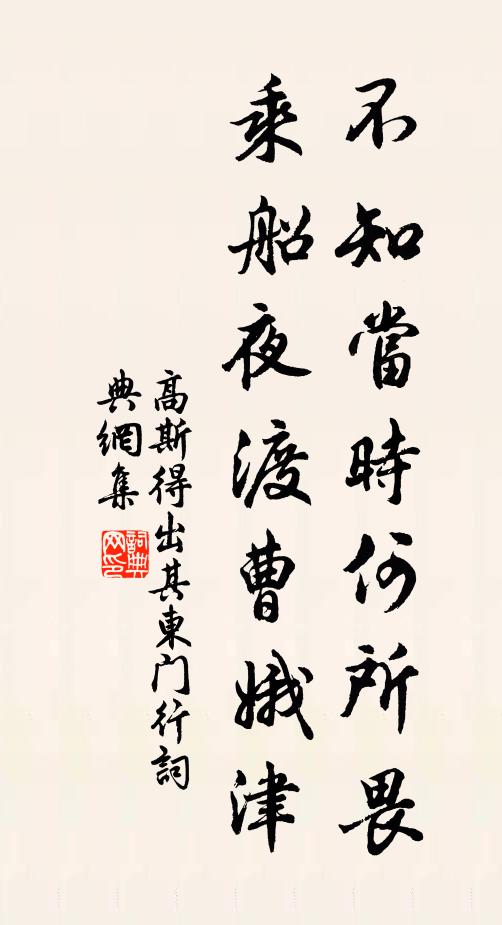 不知當時何所畏
乘船夜渡曹娥津
高斯得出其東門行詞
典網集
詞典
网印